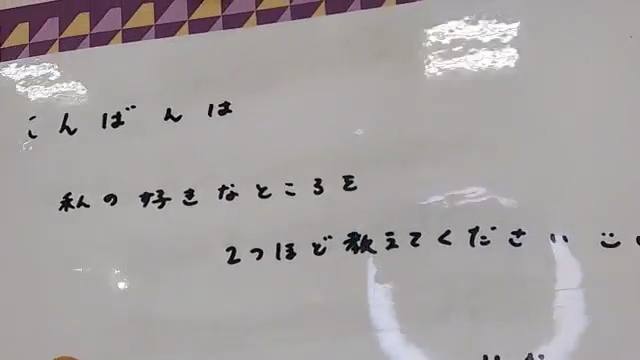 こんばんは
私の好きなところを
2つほど教えてください